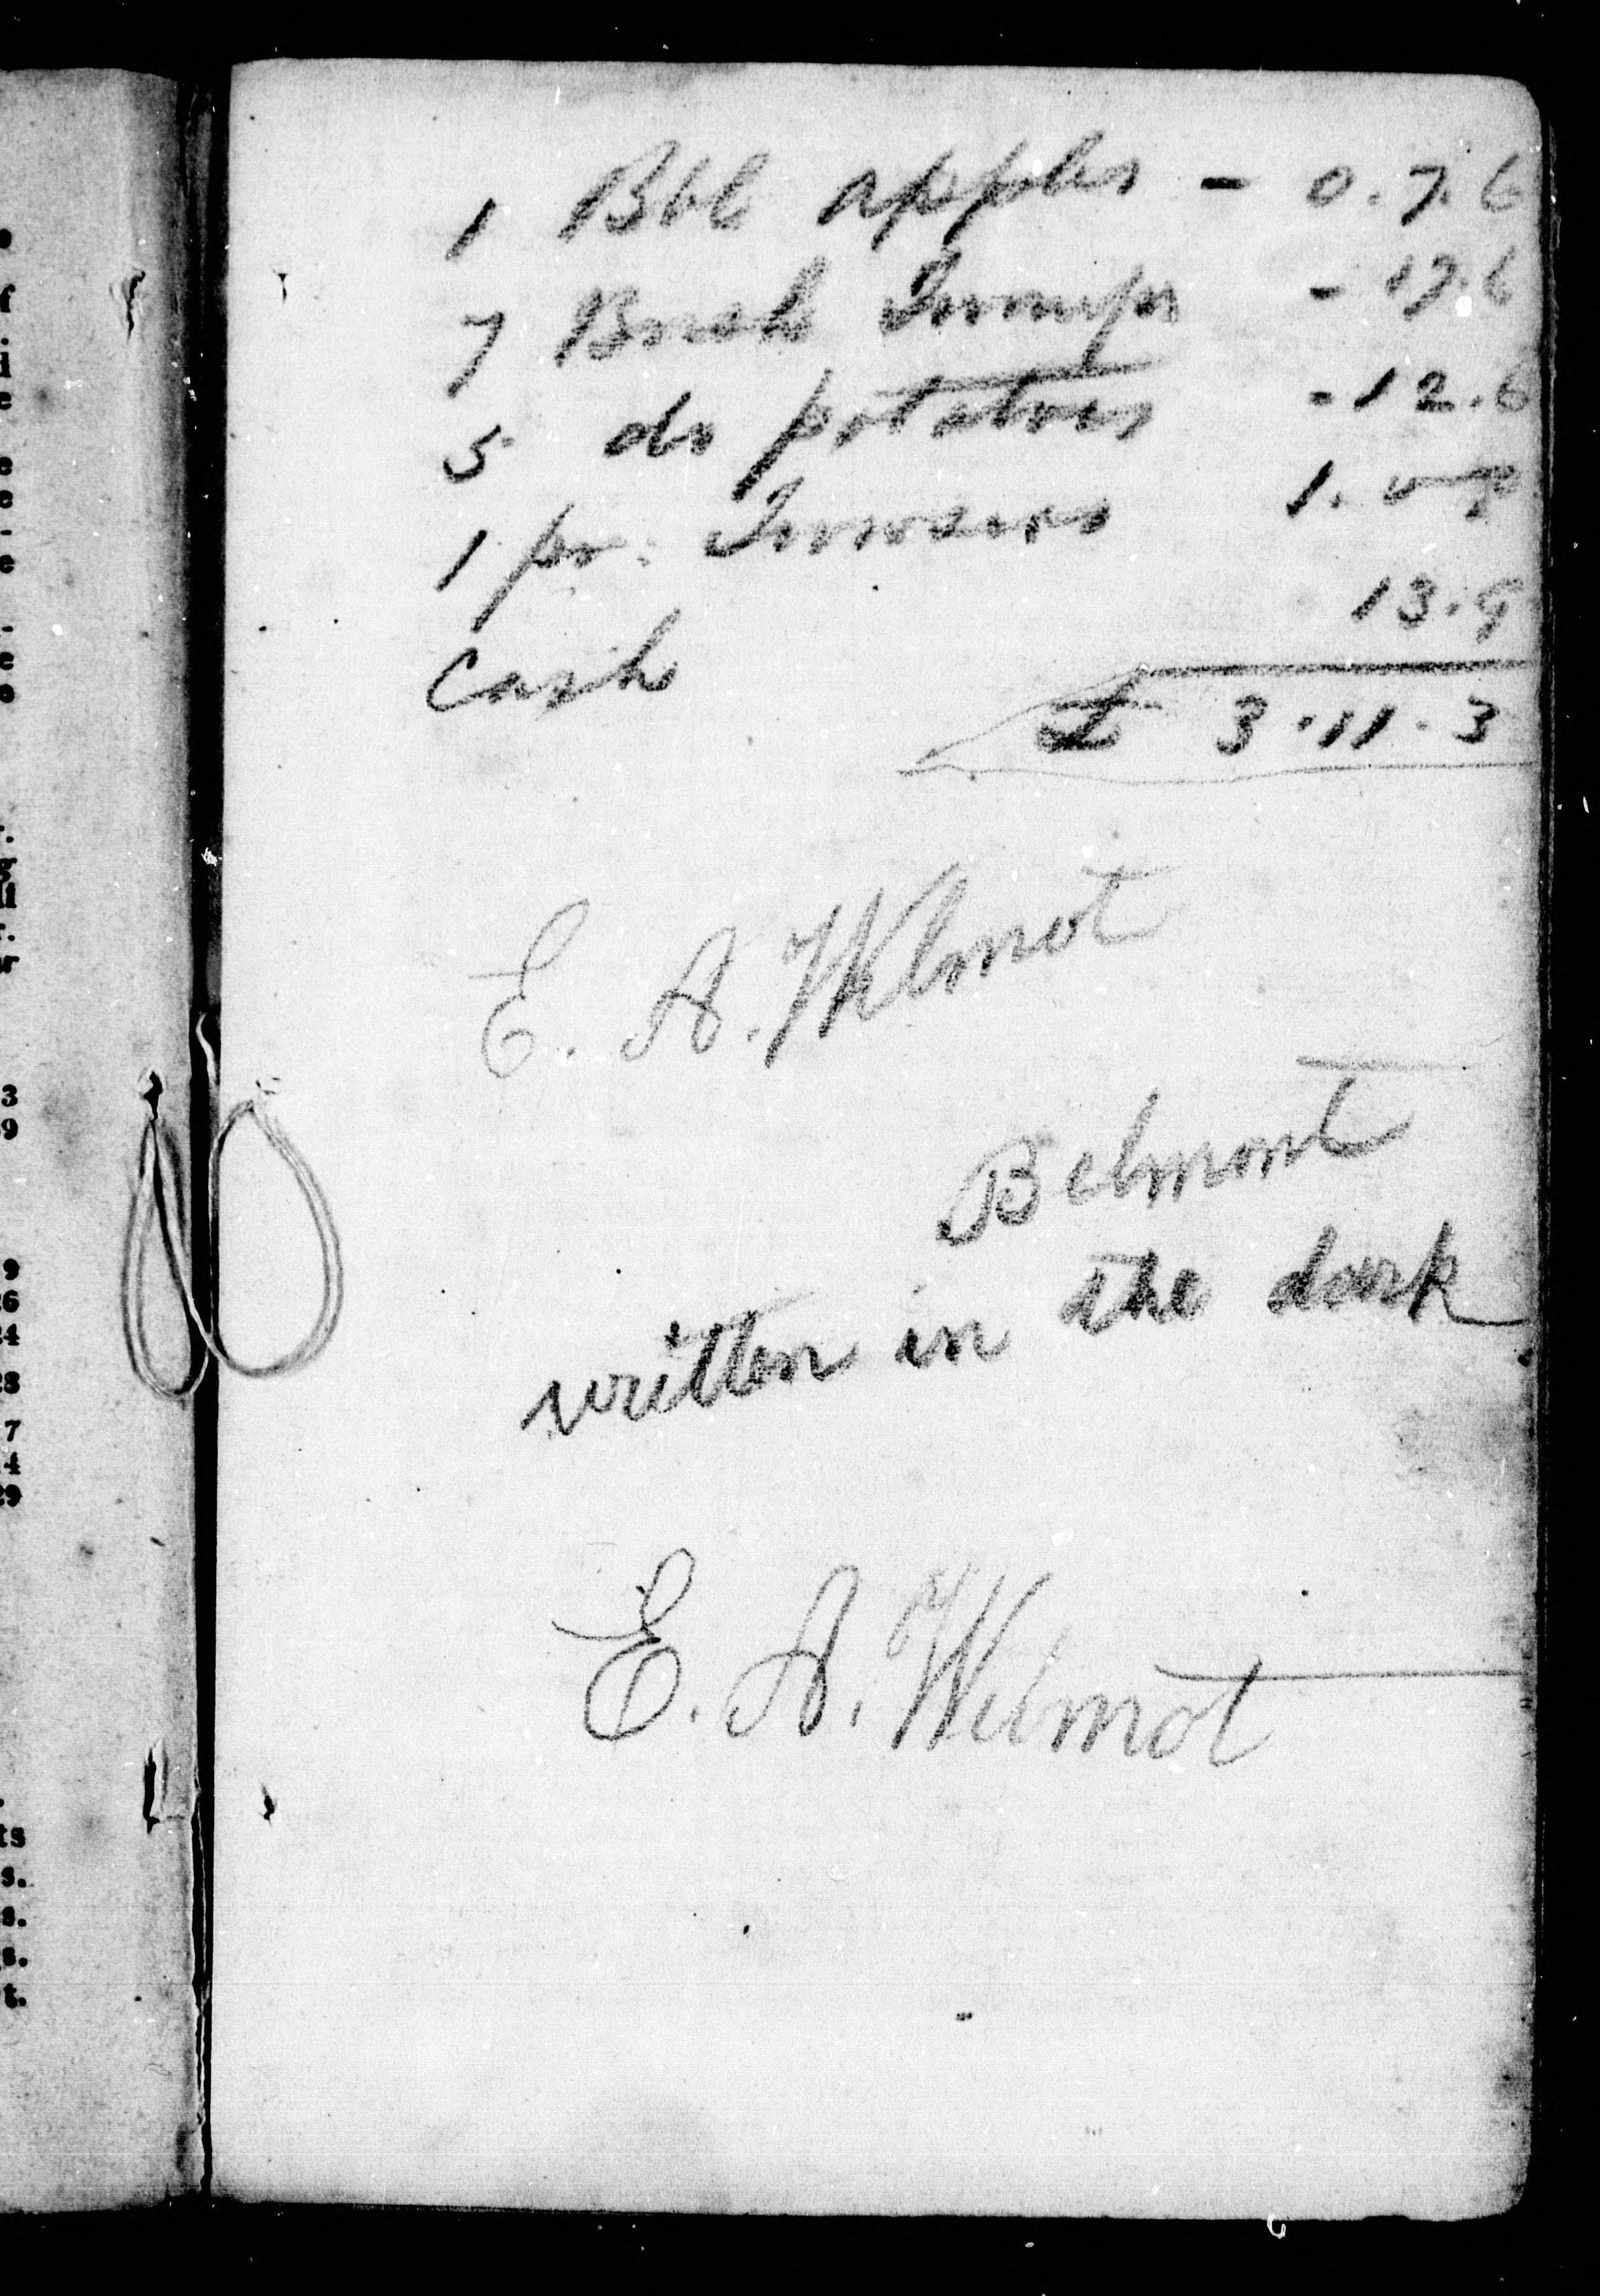 1 Bbl apples - 0.7.6
7 Bush Turnips - 17.6
5 do potatoes - 12.6
1 pr. Trowsers 1.
Cash 13.9
£ 3.11.3
E. A. Wilmot
Belmont
written in the dark
E. A. Wilmot
3
9
9
26
24
28
7
14
29
ts
s.
s.
s.
t.